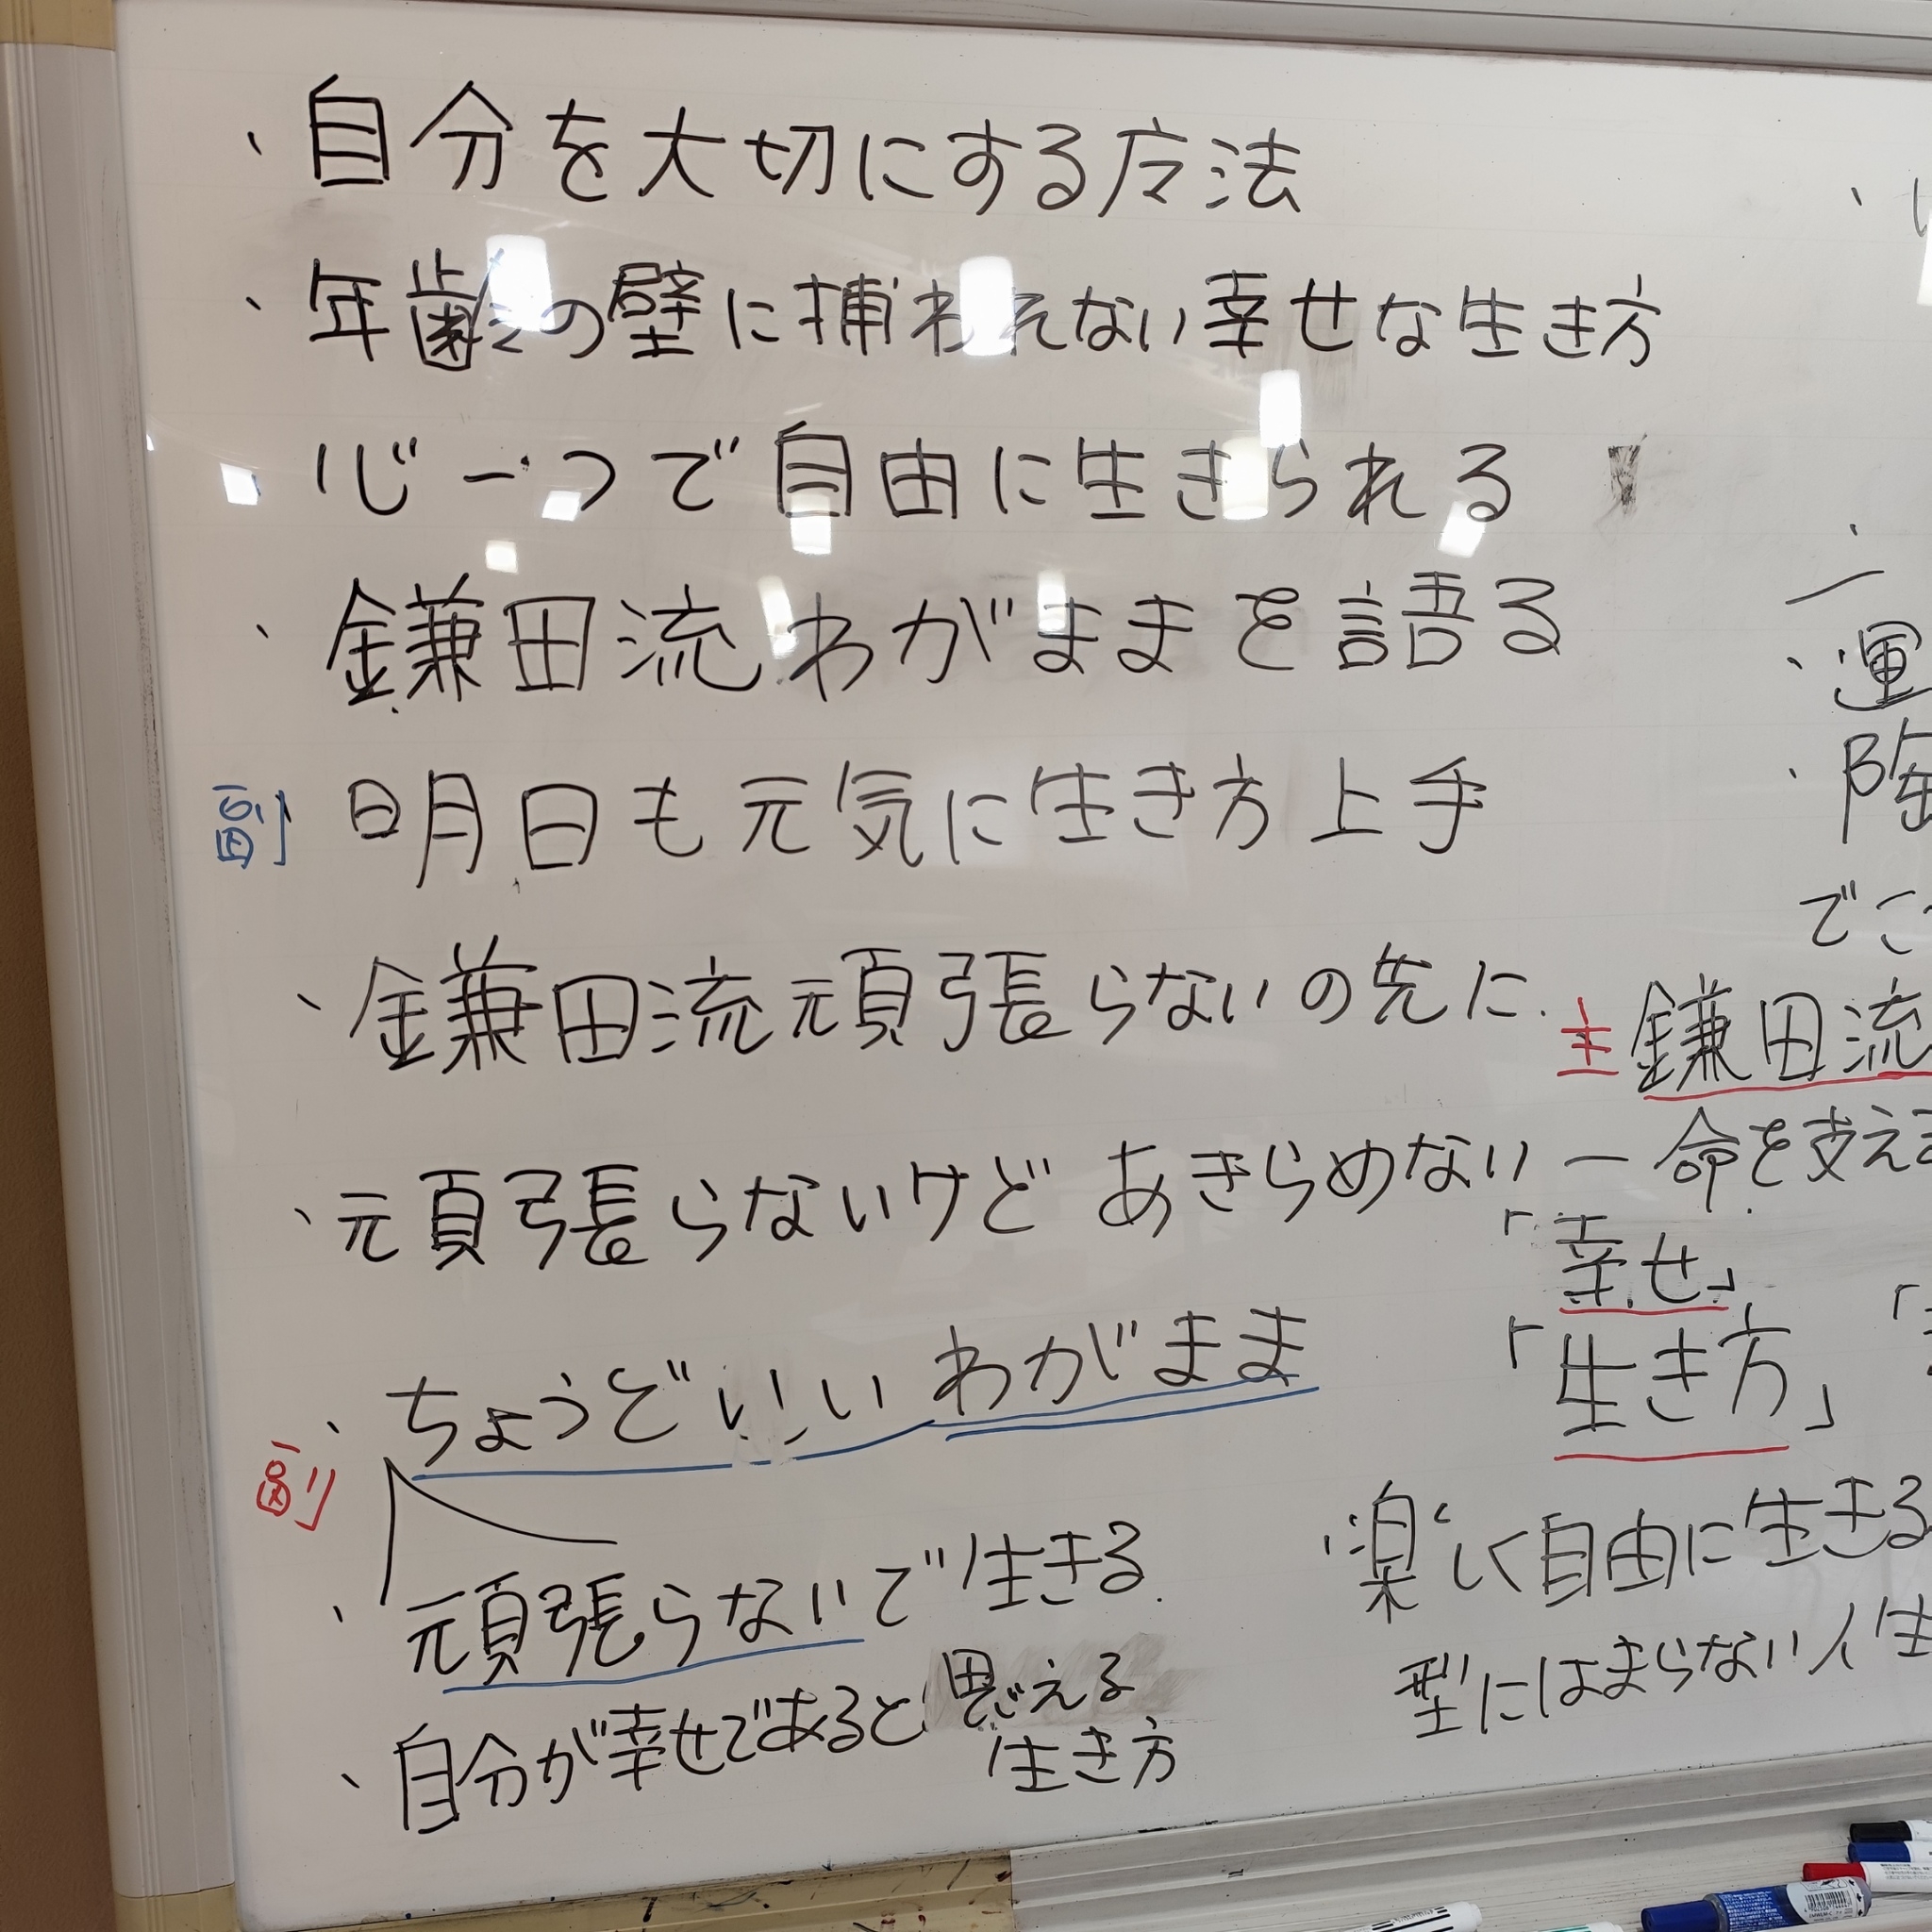 、自分を大切にする方法
、年齢の壁に捕われない幸せな生き方
、心一つで自由に生きられる
、鎌田流わがままを語る
副 明日も元気に生き方上手
、鎌田流頑張らないの先に
、頑張らないけどあきらめない
、ちょうどいいわがまま
副
、頑張らないで生きる
、自分が幸せであると思える
生き方
、運
、陶
でこ
主 鎌田流
―命を支え
「幸せ」
「生き方」
"楽しく自由に生きる
型にはまらない人生